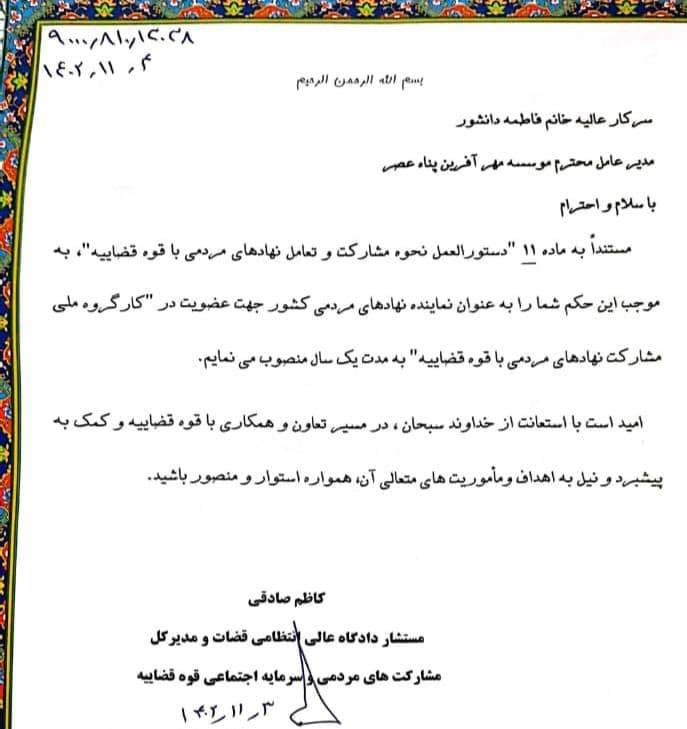 ۹۰۰۰/۸۱۰/۱۲۰۳۸
۱۴۰۲/۱۱/۴
بسم الله الرحمن الرحیم
سرکار عالیه خانم فاطمه دانشور
مدیر عامل محترم موسسه مهر آفرین پناه عصر
با سلام و احترام
مستنداً به ماده ۱۱ "دستورالعمل نحوه مشارکت و تعامل نهادهای مردمی با قوه قضاییه"، به
موجب این حکم شما را به عنوان نماینده نهادهای مردمی کشور جهت عضویت در "کارگروه ملی
مشارکت نهادهای مردمی با قوه قضاییه" به مدت یک سال منصوب می نمایم.
امید است با استعانت از خداوند سبحان، در مسیر تعاون و همکاری با قوه قضاییه و کمک به
پیشبرد و نیل به اهداف و مأموریت های متعالی آن، همواره استوار و منصور باشید.
کاظم صادقی
مستشار دادگاه عالی انتظامی قضات و مدیرکل
مشارکت های مردمی و سرمایه اجتماعی قوه قضاییه
۱۴۰۲/۱۱/۳